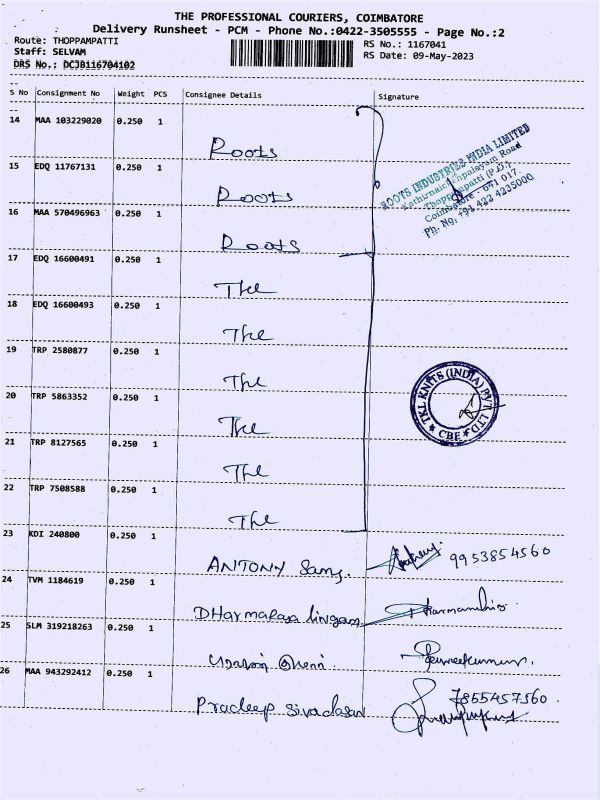 THE PROFESSIONAL COURIERS, COIMBATORE
Delivery Runsheet - PCM - Phone No.:0422-3505555 - Page No.:2
Route: THOPPAMPATTI RS No.: 1167041
Staff: SELVAM RS Date: 09-May-2023
DRS No.: DCJB116704102
S No Consignment No Weight PCS Consignee Details Signature
14 MAA 103229020 0.250 1 Roots
15 EDQ 11767131 0.250 1 Roots
16 MAA 570496963 0.250 1 Roots
ROOTS INDUSTRIES INDIA LIMITED
Kathirnaickenpalayam Road
Thoppampatti (P.O.)
Coimbatore - 641 017.
Ph. No. +91 422 4235000
17 EDQ 16600491 0.250 1 The
18 EDQ 16600493 0.250 1 The
19 TRP 2580877 0.250 1 The
20 TRP 5863352 0.250 1 The
TKL KNITS (INDIA) PVT LTD
CBE
21 TRP 8127565 0.250 1 The
22 TRP 7508588 0.250 1 The
23 KDI 240800 0.250 1 ANTONY Samy. 9953854560
24 TVM 1184619 0.250 1 DHarmaraja lingam
25 SLM 319218263 0.250 1
26 MAA 943292412 0.250 1 Pradeep Sivadasan 7855457560